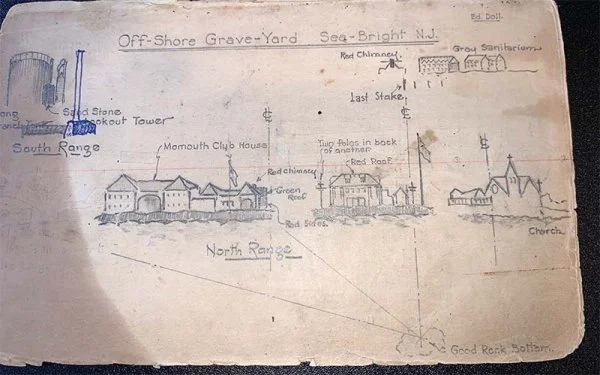 Ed. Doll.
Off-Shore Grave-Yard Sea-Bright N.J.
Red Chimney
Gray Sanitarium
Last Stake
Sand Stone
Lookout Tower
South Range
Momouth Clyb House
Two Poles in back
of another
Red Roof
Red Chimney
Green
Roof
Red Sides.
North Range
Church.
Good Rock Bottom.